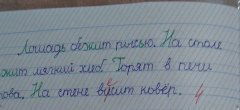 Лошадь бежит рысью. На столе
жит мягкий хлеб Горят в печи
рова. На стене висит ковёр. 4